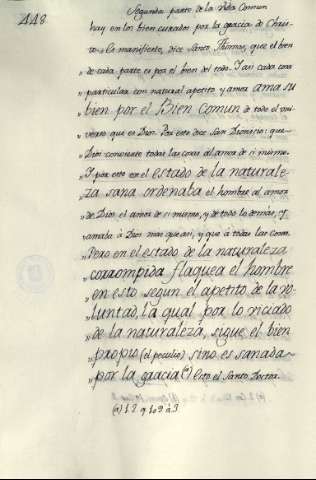 448
Segunda parte de la Vida Comun
hay en los bien curados por la gracia de Chris-
to. Es manifiesto, dice Santo Thomas, que el bien
» de cada parte es por el bien del todo. I asi cada cosa
particular con natural apetito y amor ama su
bien por el Bien Comun de todo el uni-
verso que es Dios. Por esto dice San Dionisio: que
» Dios convierte todas las cosas al amor de si mismo.
» I por esto en el estado de la naturale-
za sana ordenaba el hombre al amor
» de Dios el amor de si mismo, y de todo lo demás, y
» amaba à Dios mas que asi, y que à todas las cosas.
Pero en el estado de la naturaleza
» corrompida flaquea el hombre
» en esto segun el apetito de la vo-
» luntad, la qual por lo viciado
» de la naturaleza, sigue el bien
» propio (el peculio) sino es sanada
» por la gracia (a) Esto el Santo Doctor.
(a) 1.2. q. 109. à 3.